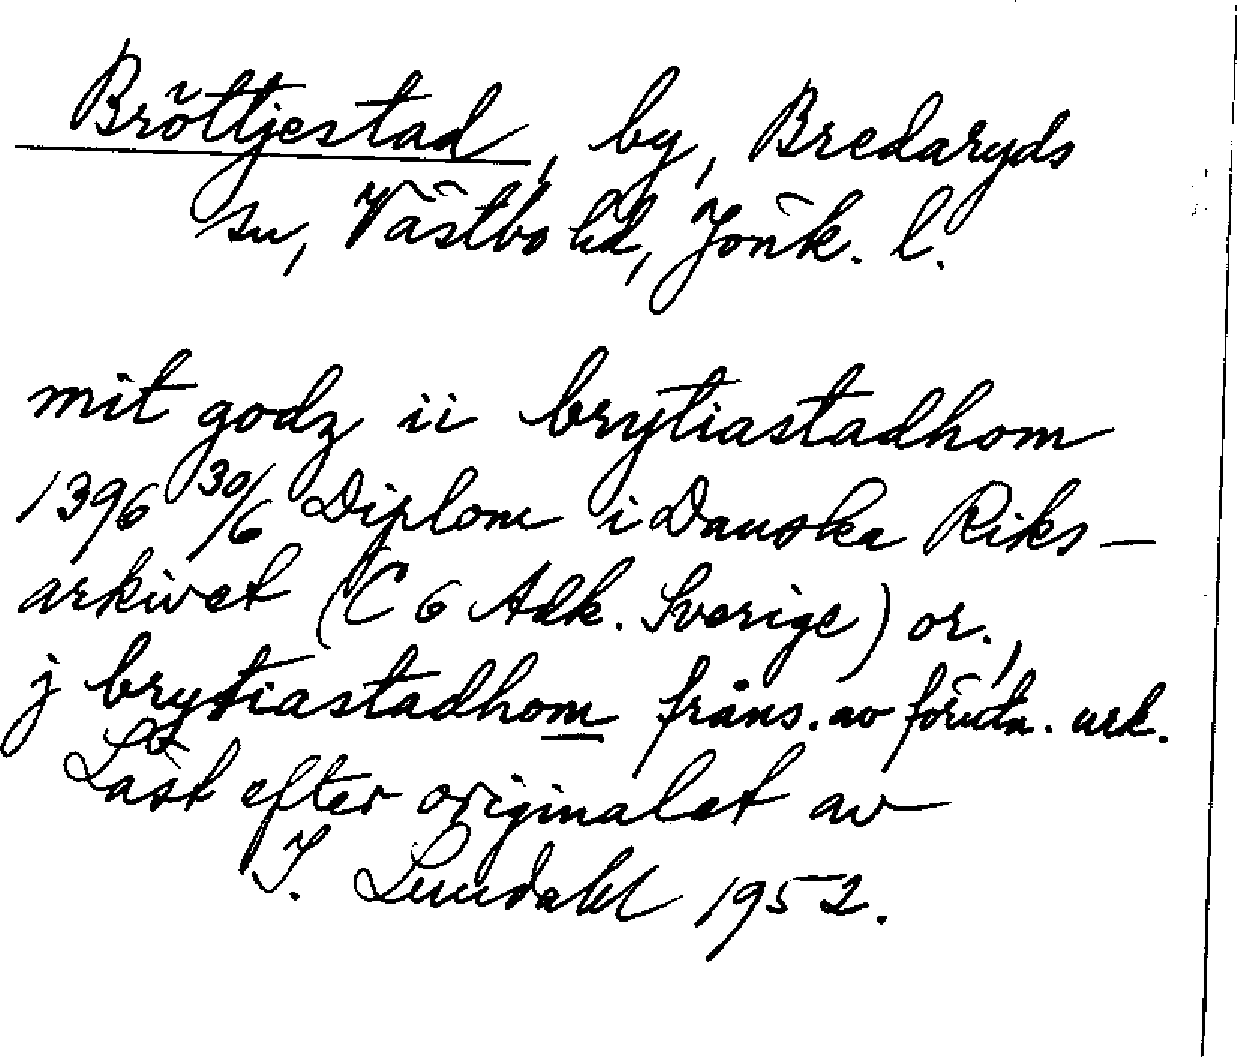 Bröttjestad, by, Bredaryds
sn, Västbo hd, Jönk. l.
mit godz ii brytiastadhom
1396 30/6 Diplom i Danska Riks-
arkivet (C 6 Adk. Sverige) or.,
j brytiastadhom fråns. av föruta. urk.
Läst efter originalet av
I. Lundahl 1952.